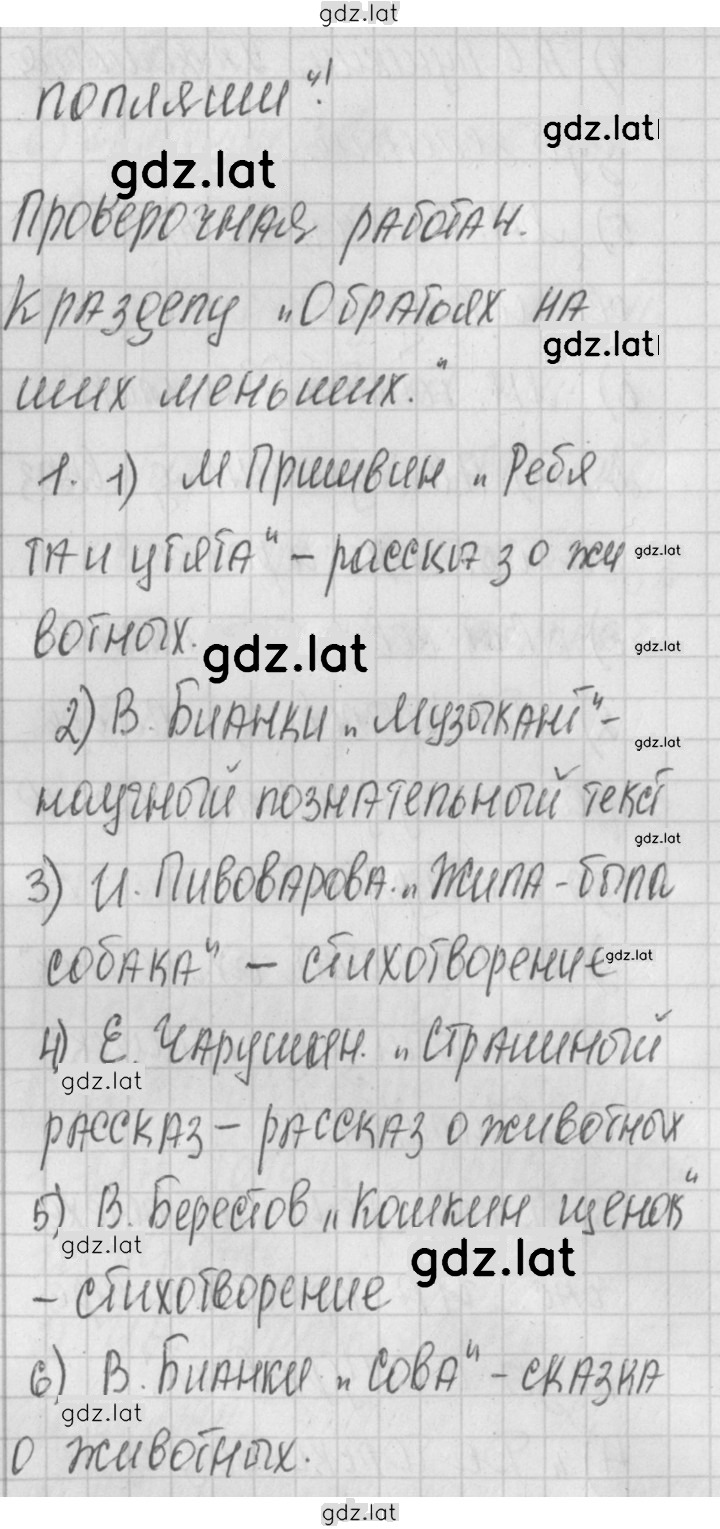 gdz.lat
попляши"!
gdz.lat
gdz.lat
Проверочная работа н.
К разделу „О братьях на
gdz.lat
ших меньших."
1. 1) М Пришвин „Ребя
та и утята" – рассказ о жи
gdz.lat
вотных.
gdz.lat
gdz.lat
2) В. Бианки „Музыкант" –
gdz.lat
научный познательный текст
gdz.lat
3) И. Пивоварова. „Жила-была
собака" – стихотворение
gdz.lat
4) Е. Чарушин. „Страшный
gdz.lat
рассказ – рассказ о животных
5) В. Берестов „Кошкин щенок"
gdz.lat
gdz.lat
– стихотворение
6) В. Бианки „Сова" – сказка
gdz.lat
о животных.
gdz.lat